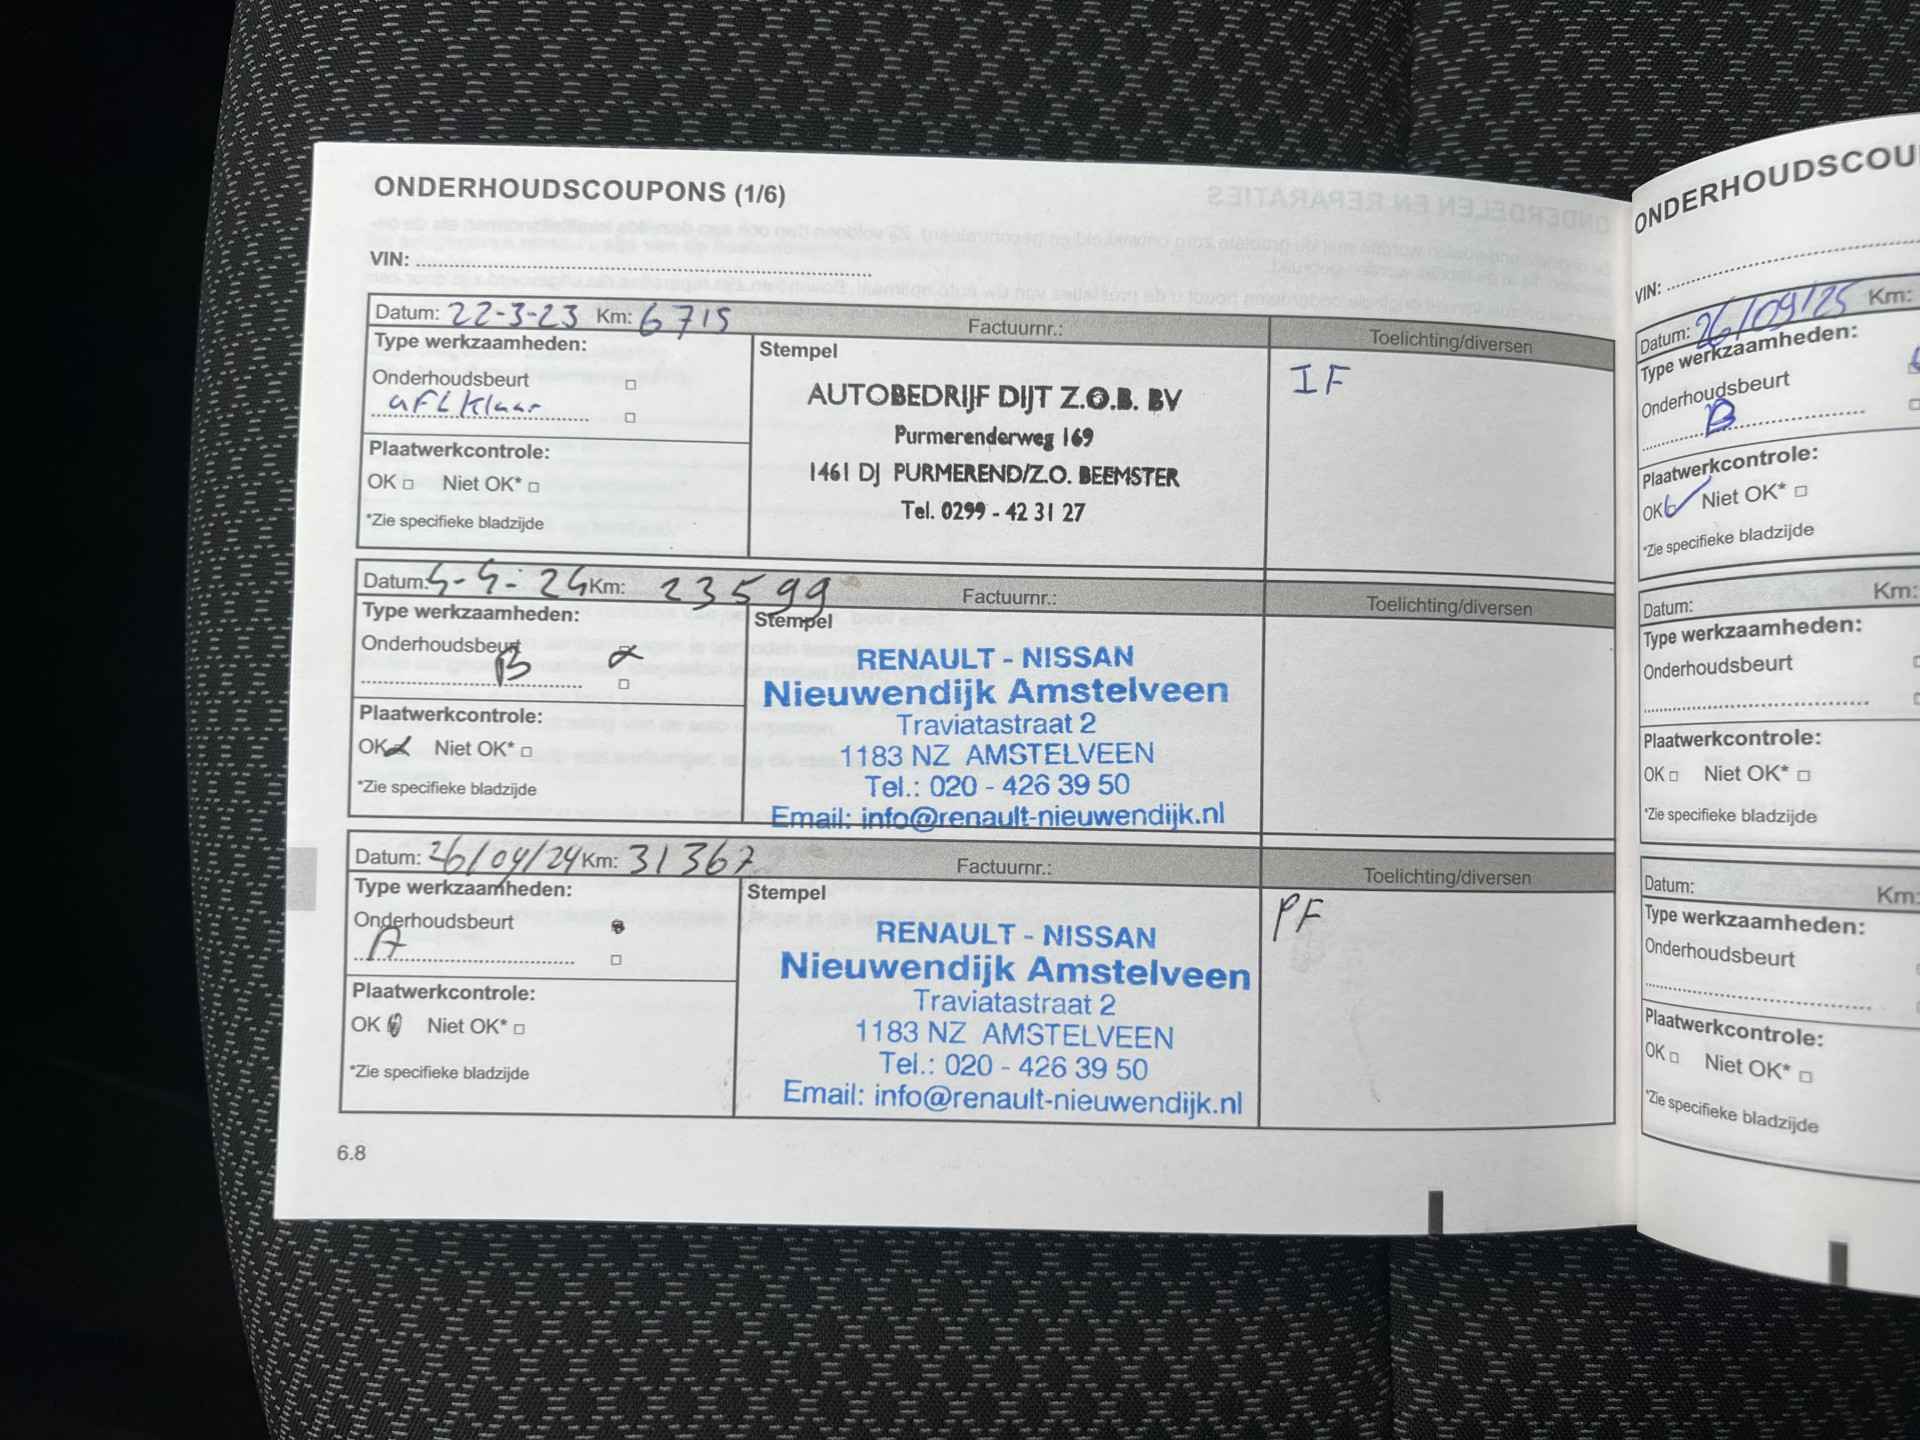 ONDERHOUDSCOUPONS (1/6)
VIN:
Datum: 22-3-23 Km: 6715 Factuurnr.: Toelichting/diversen
Type werkzaamheden:
Onderhoudsbeurt
afl klaar
Plaatwerkcontrole:
OK Niet OK*
*Zie specifieke bladzijde
Stempel
AUTOBEDRIJF DIJT Z.O.B. BV
Purmerenderweg 169
1461 DJ PURMEREND/Z.O. BEEMSTER
Tel. 0299 - 42 31 27
IF
Datum: 4-4-24 Km: 23599 Factuurnr.: Toelichting/diversen
Type werkzaamheden:
Onderhoudsbeurt
B
Plaatwerkcontrole:
OK Niet OK*
*Zie specifieke bladzijde
Stempel
RENAULT - NISSAN
Nieuwendijk Amstelveen
Traviatastraat 2
1183 NZ AMSTELVEEN
Tel.: 020 - 426 39 50
Email: info@renault-nieuwendijk.nl
Datum: 26/09/24 Km: 31367 Factuurnr.: Toelichting/diversen
Type werkzaamheden:
Onderhoudsbeurt
A
Plaatwerkcontrole:
OK Niet OK*
*Zie specifieke bladzijde
Stempel
RENAULT - NISSAN
Nieuwendijk Amstelveen
Traviatastraat 2
1183 NZ AMSTELVEEN
Tel.: 020 - 426 39 50
Email: info@renault-nieuwendijk.nl
PF
6.8
ONDERHOUDSCOU
VIN:
Datum: 26/09/25 Km:
Type werkzaamheden:
Onderhoudsbeurt
B
Plaatwerkcontrole:
OK Niet OK*
*Zie specifieke bladzijde
Datum: Km:
Type werkzaamheden:
Onderhoudsbeurt
Plaatwerkcontrole:
OK Niet OK*
*Zie specifieke bladzijde
Datum: Km:
Type werkzaamheden:
Onderhoudsbeurt
Plaatwerkcontrole:
OK Niet OK*
*Zie specifieke bladzijde